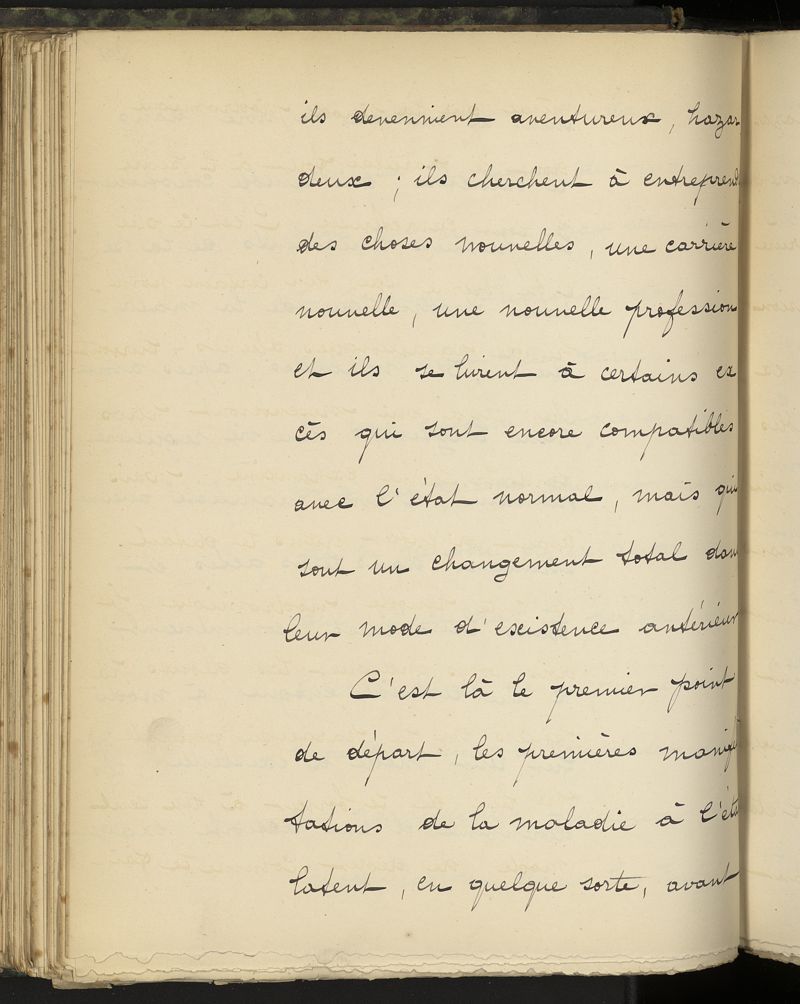 ils deviennent aventureux, hazar
deux ; ils cherchent à entreprend
des choses nouvelles, une carrière
nouvelle, une nouvelle profession
et ils se livrent à certains ex
cès qui sont encore compatibles
avec l'état normal, mais qui
sont un changement total dans
leur mode d'existence antérieur
C'est là le premier point
de départ, les premières manifes
tations de la maladie à l'état
latent, en quelque sorte, avant